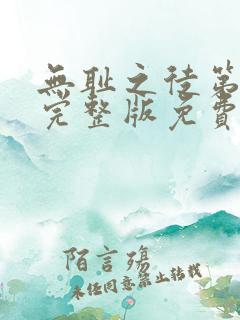 無耻之徒第
完整版免費
陌言殤
未经同意禁止转载